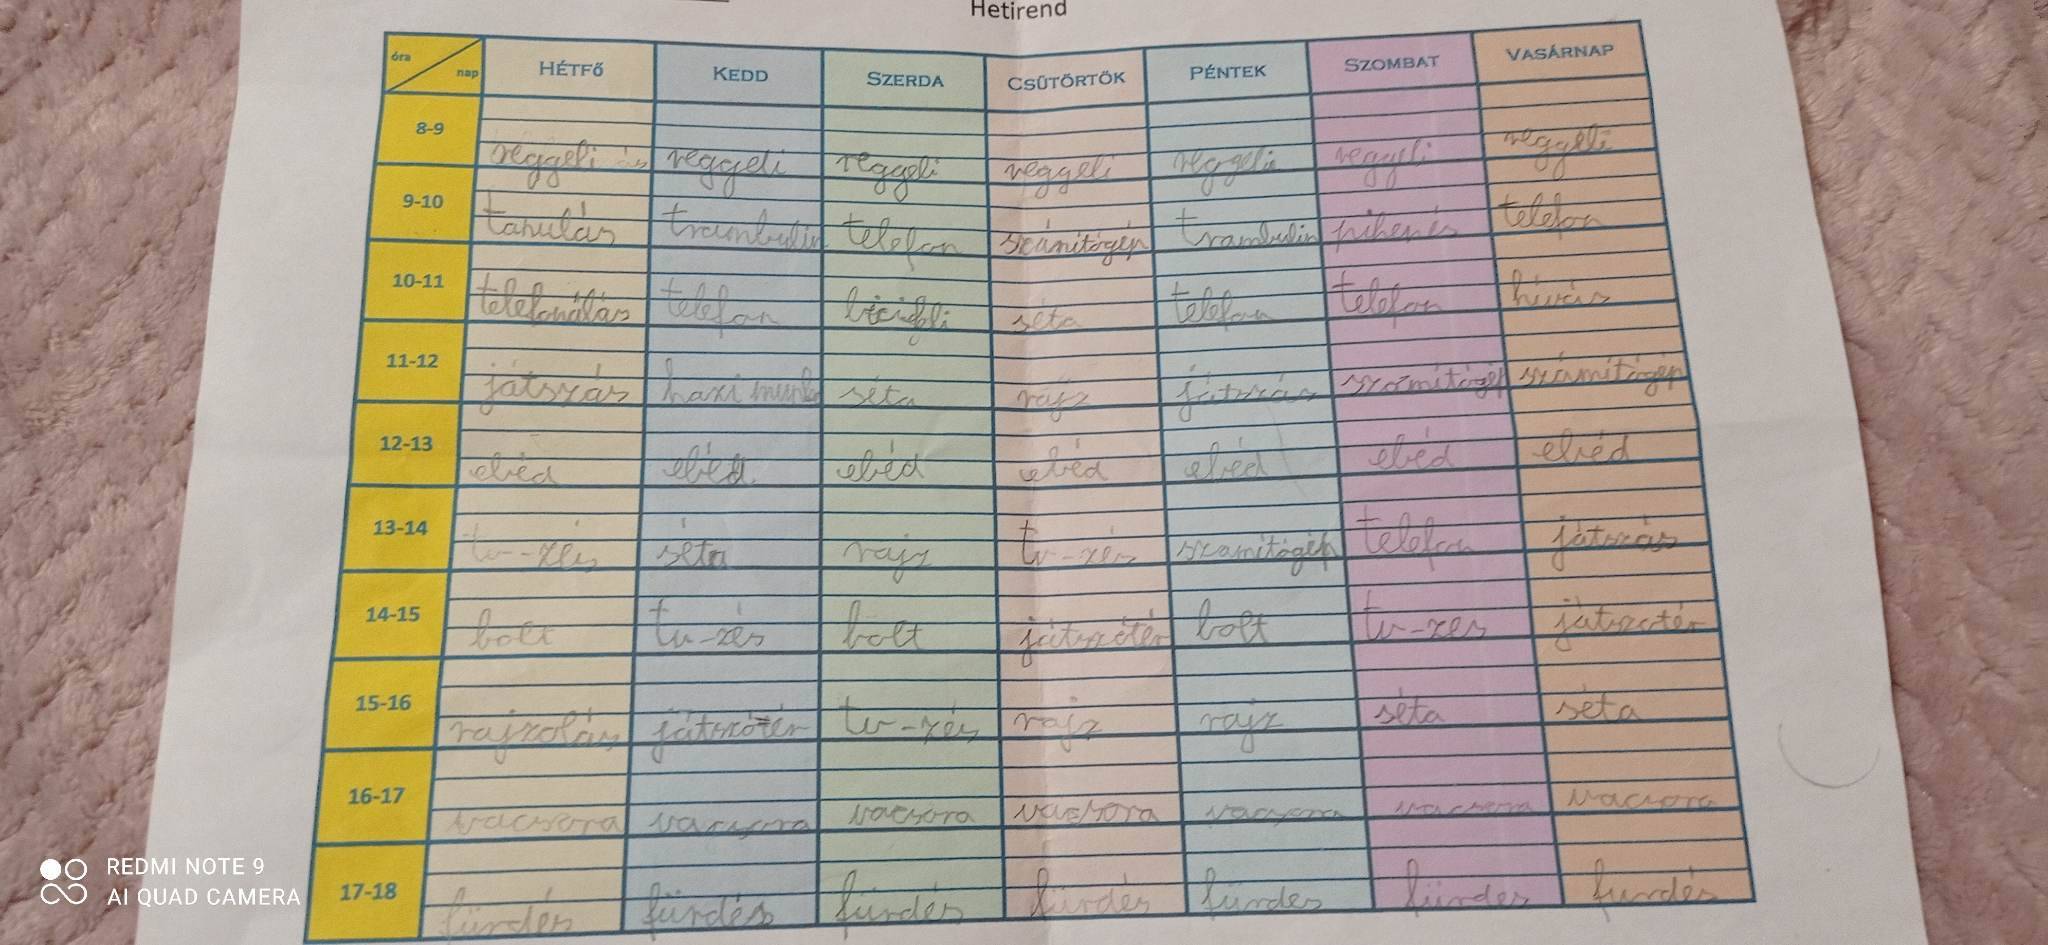 Hetirend
óra nap HÉTFŐ KEDD SZERDA CSÜTÖRTÖK PÉNTEK SZOMBAT VASÁRNAP
8-9 reggeli és reggeli reggeli reggeli reggeli reggeli reggeli
9-10 tanulás trambulin telefon számítógép trambulin pihenés telefon
10-11 telefonálás telefon bicigli séta telefon telefon hívás
11-12 játszás hazi munka séta rajz játszás számítógép számítógép
12-13 ebéd ebéd ebéd ebéd ebéd ebéd ebéd
13-14 tv-zés séta rajz tv-zés szamítógép telefon játszás
14-15 bolt tv-zés bolt játszótér bolt tv-zes játszotér
15-16 rajzolás játszótér tv-zés rajz rajz séta séta
16-17 vacsora vacsora vacsora vacsora vacsora vacsora vacsora
17-18 fürdés fürdés fürdés fürdés fürdes fürdes fürdés
REDMI NOTE 9
AI QUAD CAMERA